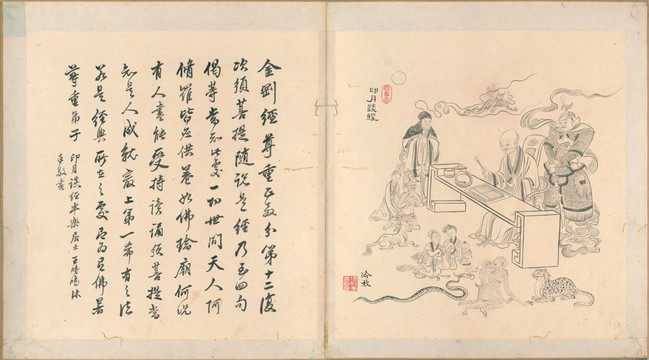 印月談經
冷枚
金剛經尊重正教分第十二復
次須菩提隨說是經乃至四句
偈等當知此處一切世間天人阿
脩羅皆應供養如佛塔廟何況
有人盡能受持讀誦須菩提當
知是人成就最上第一希有之法
若是經典所在之處即為有佛若
尊重弟子
印月談經半樂居士
敬書